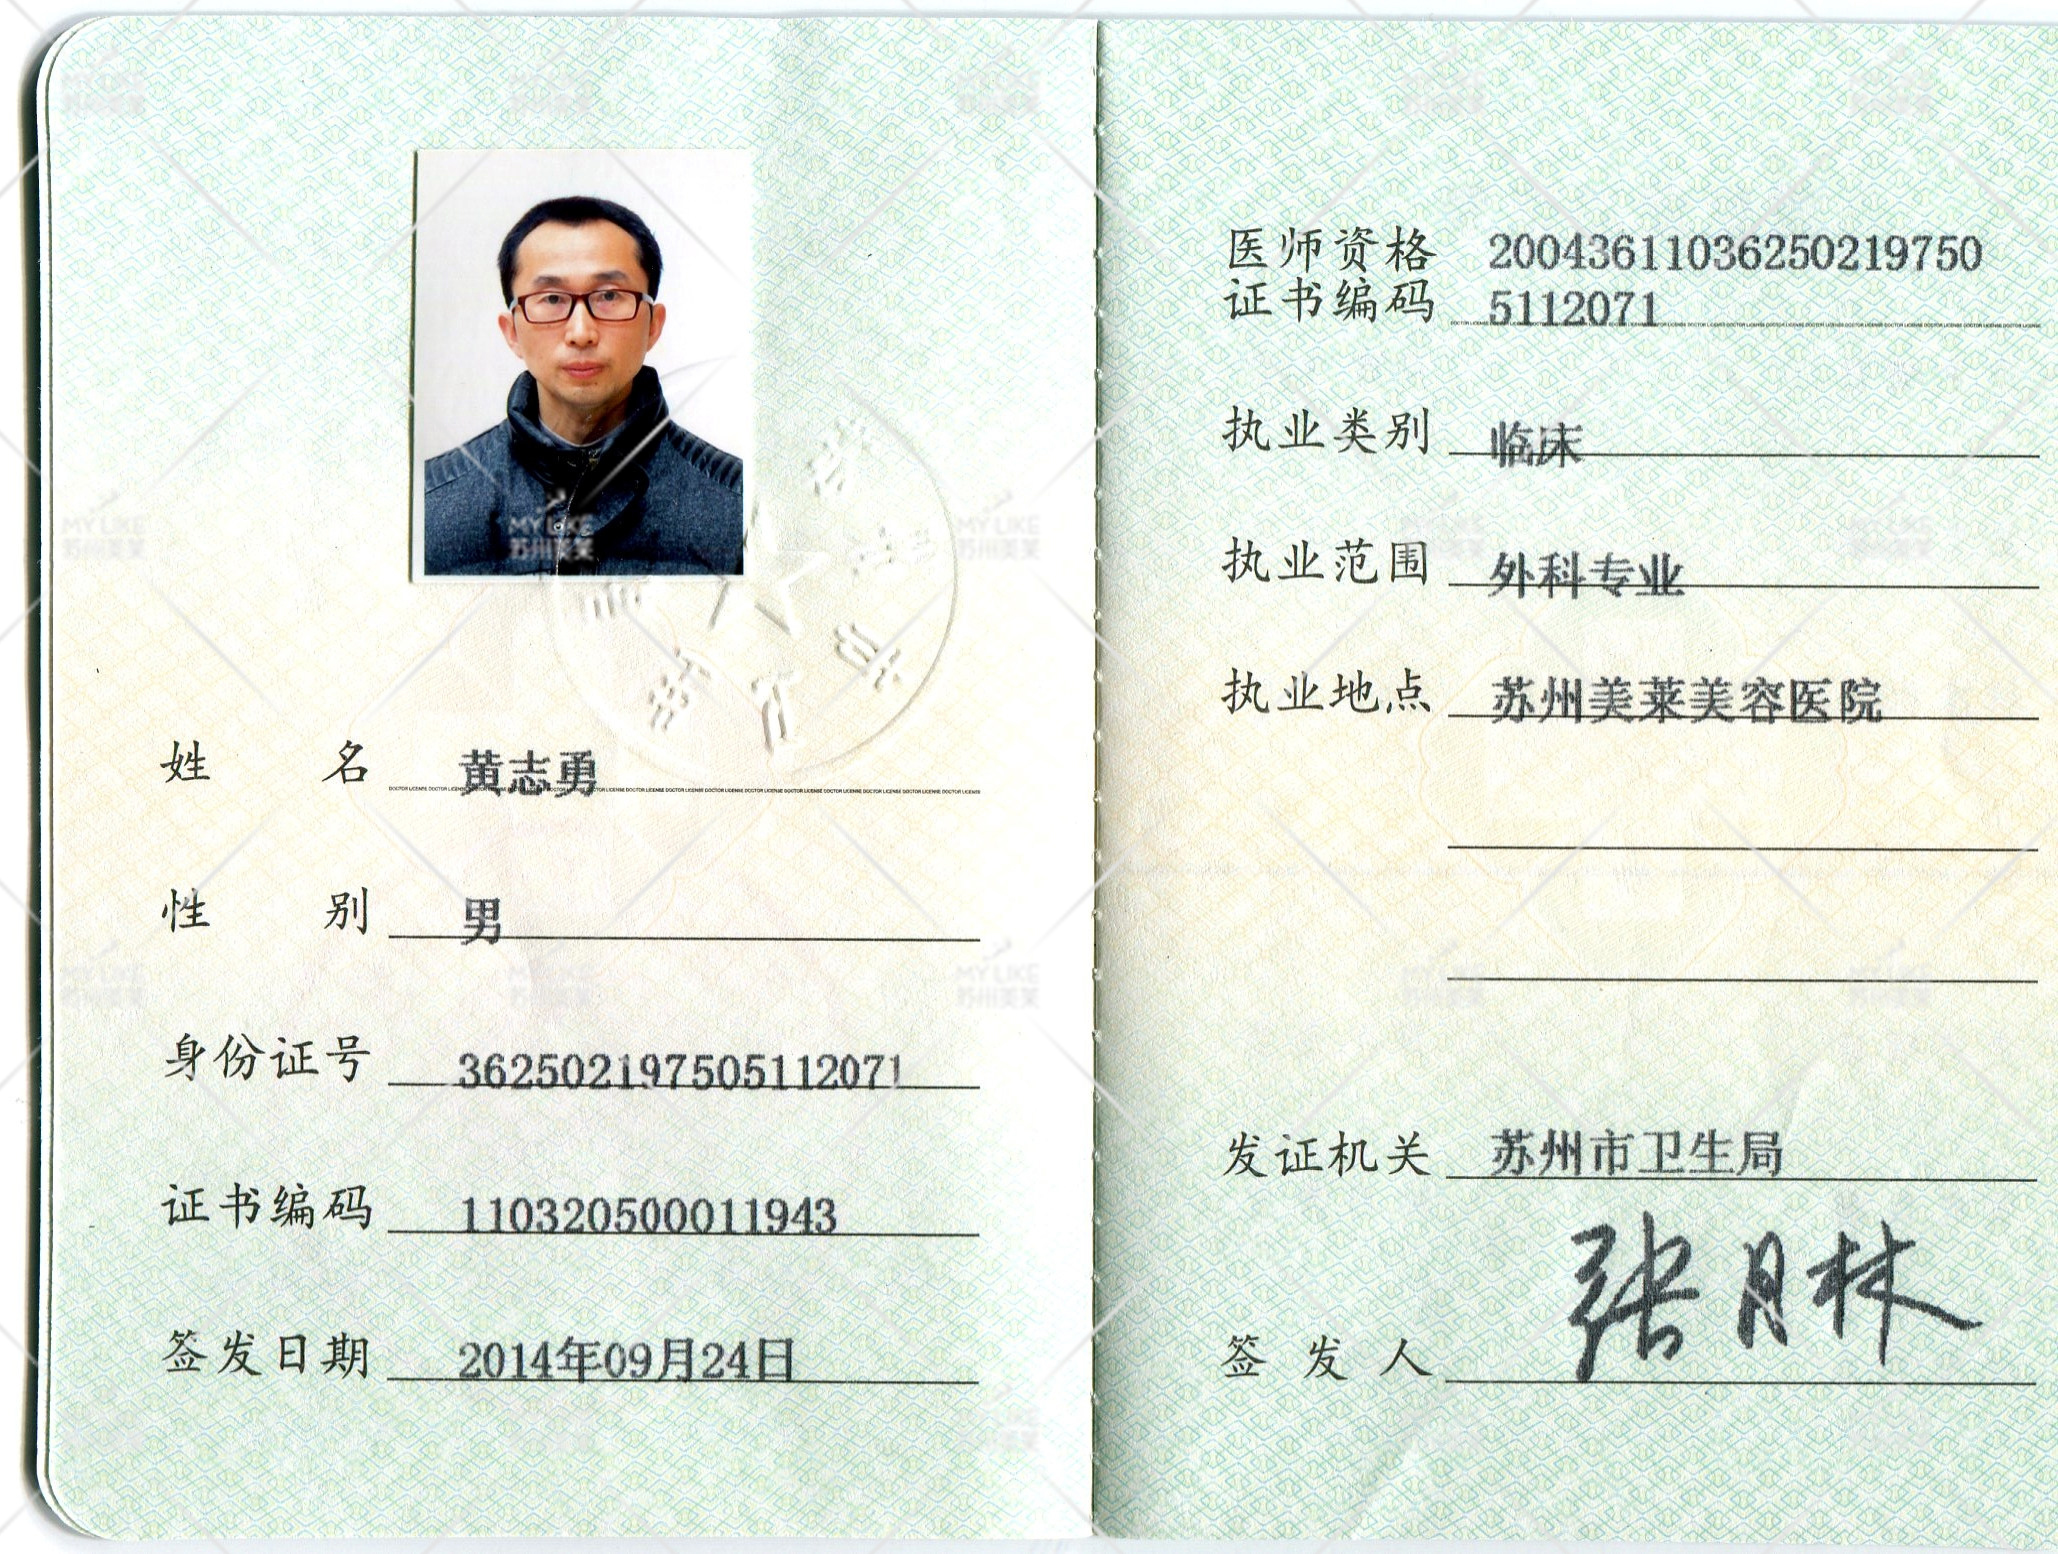 姓名 黄志勇
性别 男
身份证号 362502197505112071
证书编码 110320500011943
签发日期 2014年09月24日
医师资格 20043611036250219750
证书编码 5112071
执业类别 临床
执业范围 外科专业
执业地点 苏州美莱美容医院
发证机关 苏州市卫生局
签发人 张月林
MY LIKE
苏州美莱